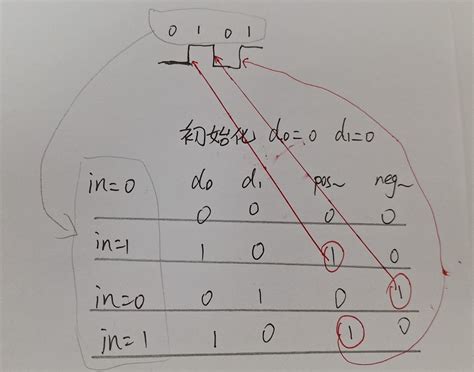 0 1 0 1
初始化 d₀=0 d₁=0
in=0 d₀ d₁ pos~ neg~
0 0 0 0
in=1 1 0 1 0
in=0 0 1 0 1
in=1 1 0 1 0